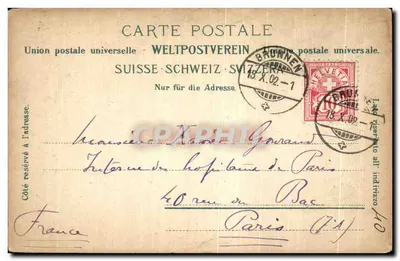 CARTE POSTALE
Union postale universelle WELTPOSTVEREIN postale universale.
SUISSE·SCHWEIZ·SVIZZERA
Nur für die Adresse.
BRUNNEN
18 X.02.-1
HELVETIA
10
BRUNNEN
18.X.02.-1
Côté réservé à l'adresse.
all' indirizzo
CARTHAGO
Monsieur
Interne des hopitaux de Paris
40 rue du Bac
Paris
France
40